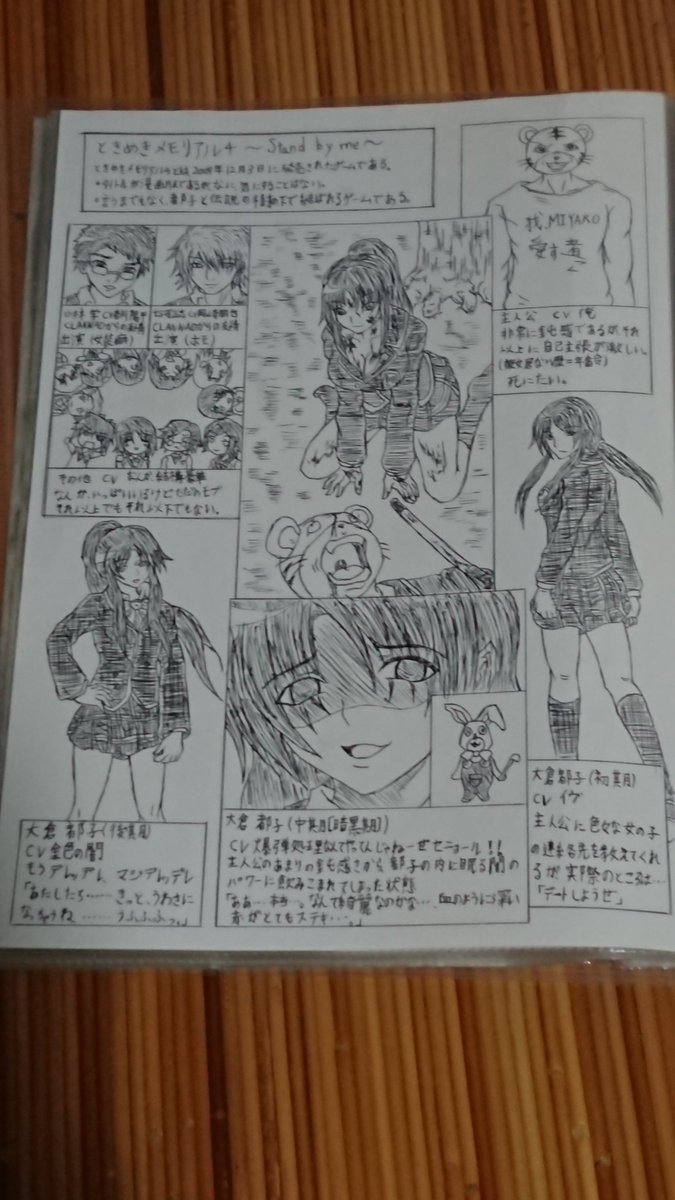 ときめきメモリアル4 ～Stand by me～
ときめきメモリアル4とは2009年12月3日に発売されたゲームである。
・タイトルが
・言うまでもなく、都子と伝説の樹の下で結ばれるゲームである。
我、MIYAKO
愛す者
主人公 CV 俺
非常に鈍感であるが、それ
以上に自己主張が激しい。
(彼女居ない歴=年齢
死にたい。
CLANNADからの友情
出演
CLANNADからの友情
出演 (ホモ)
その他 CV
なんか、いっぱいいるけどただのモブ
それ以上でもそれ以下でもない。
大倉 都子(後期)
CV 金色の闇
もうデレッデレ、マジデレッデレ
「あたしたち……きっと、うわさに
なっちゃうね……うふふふっ。」
大倉 都子(中期[暗黒期])
CV 爆弾処理
主人公のあまりの鈍感さから都子の内に眠る闇の
パワーに飲みこまれてしまった状態
「ああ…本当…。なんて綺麗なのかな…、血のように
赤がとてもステキ…。」
大倉都子(初期)
CV イヴ
主人公に色々な女の子
の連絡先を教えてくれ
るが実際のところは…
「デートしようぜ」